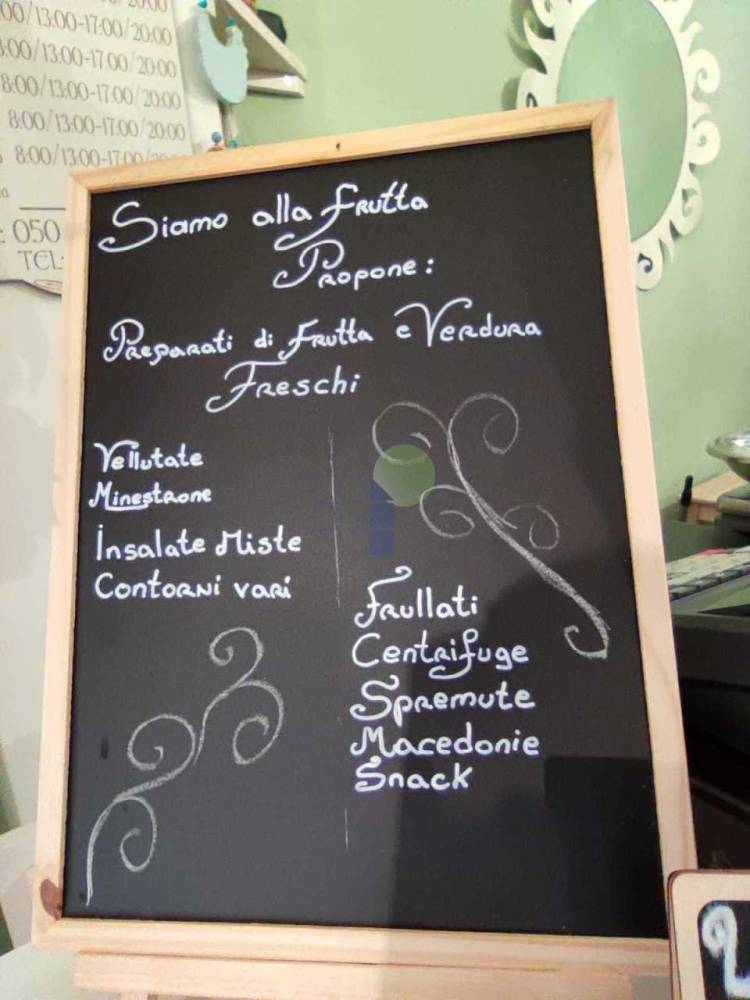 00/13:00-17:00/20:00
:00/13:00-17:00/20:00
8:00/13:00-17:00/20:00
8:00/13:00-17:00/20:00
8:00/13:00-17:00/20:00
050
TEL:
Siamo alla Frutta
Propone:
Preparati di Frutta e Verdura
Freschi
Vellutate
Minestrone
Insalate Miste
Contorni vari
Frullati
Centrifuge
Spremute
Macedonie
Snack